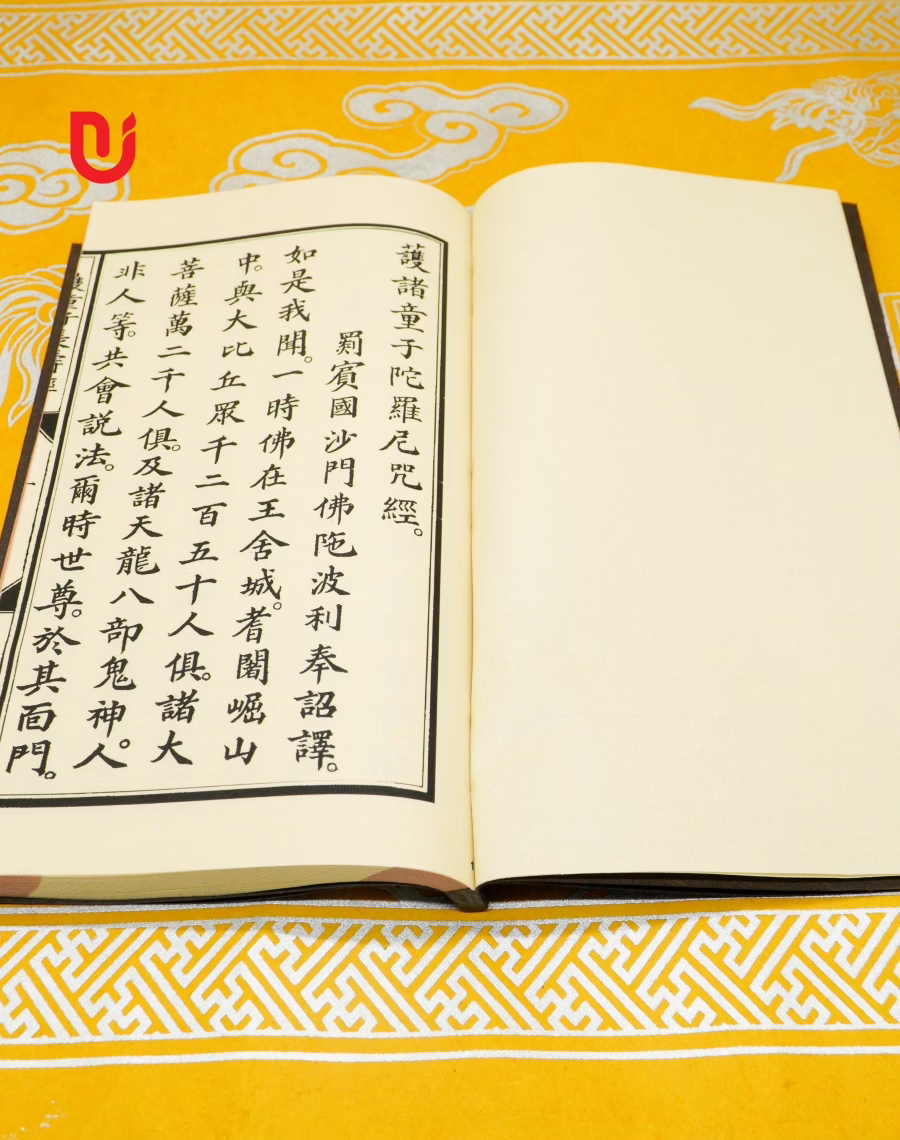 䕶諸童子陀羅尼咒經。
罽賓國沙門佛陁波利奉詔譯。
如是我聞。一時佛在王舍城。耆闍崛山
中。與大比丘眾千二百五十人俱。諸大
菩薩萬二千人俱。及諸天龍八部鬼神人。
非人等。共會説法。爾時世尊。於其面門。